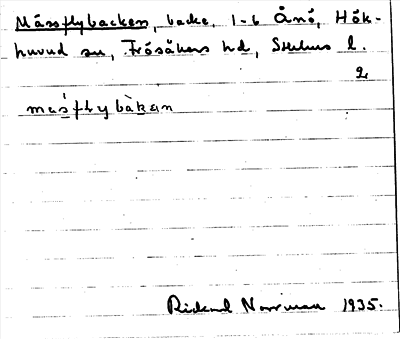 Mässflybacken, backe, 1-6 Ånö, Hök-
huvud sn, Frösåkers hd, Sthlms l.
2
mäsflybàkan
Rickard Norrman 1935.